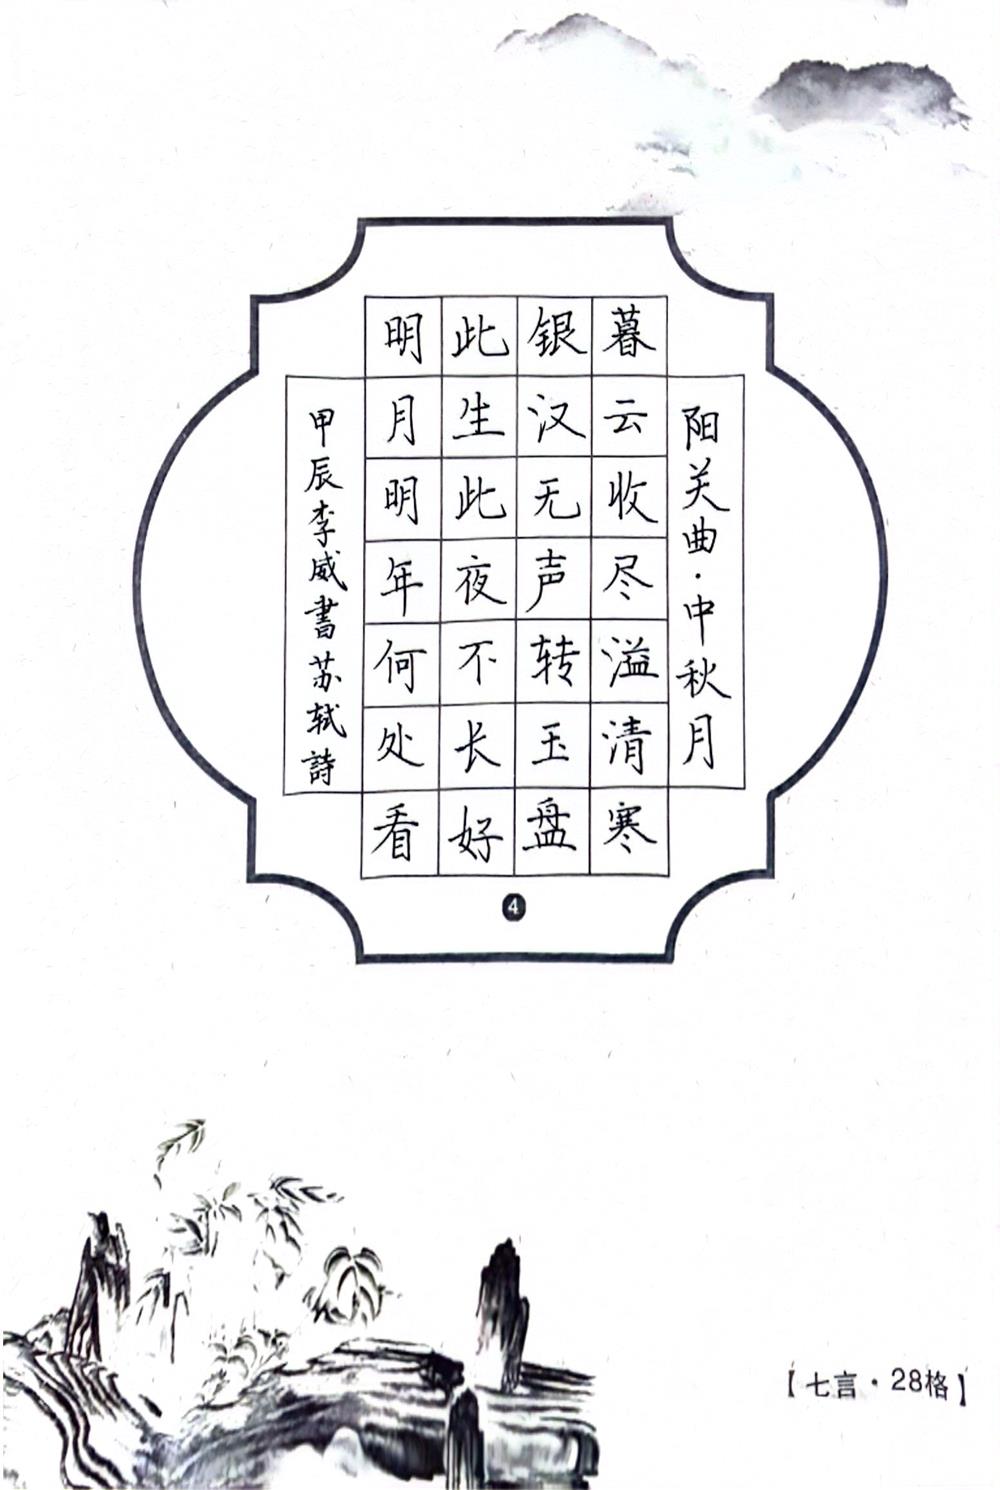 阳关曲·中秋月
暮云收尽溢清寒
银汉无声转玉盘
此生此夜不长好
明月明年何处看
甲辰李威書苏轼詩
4
【七言·28格】